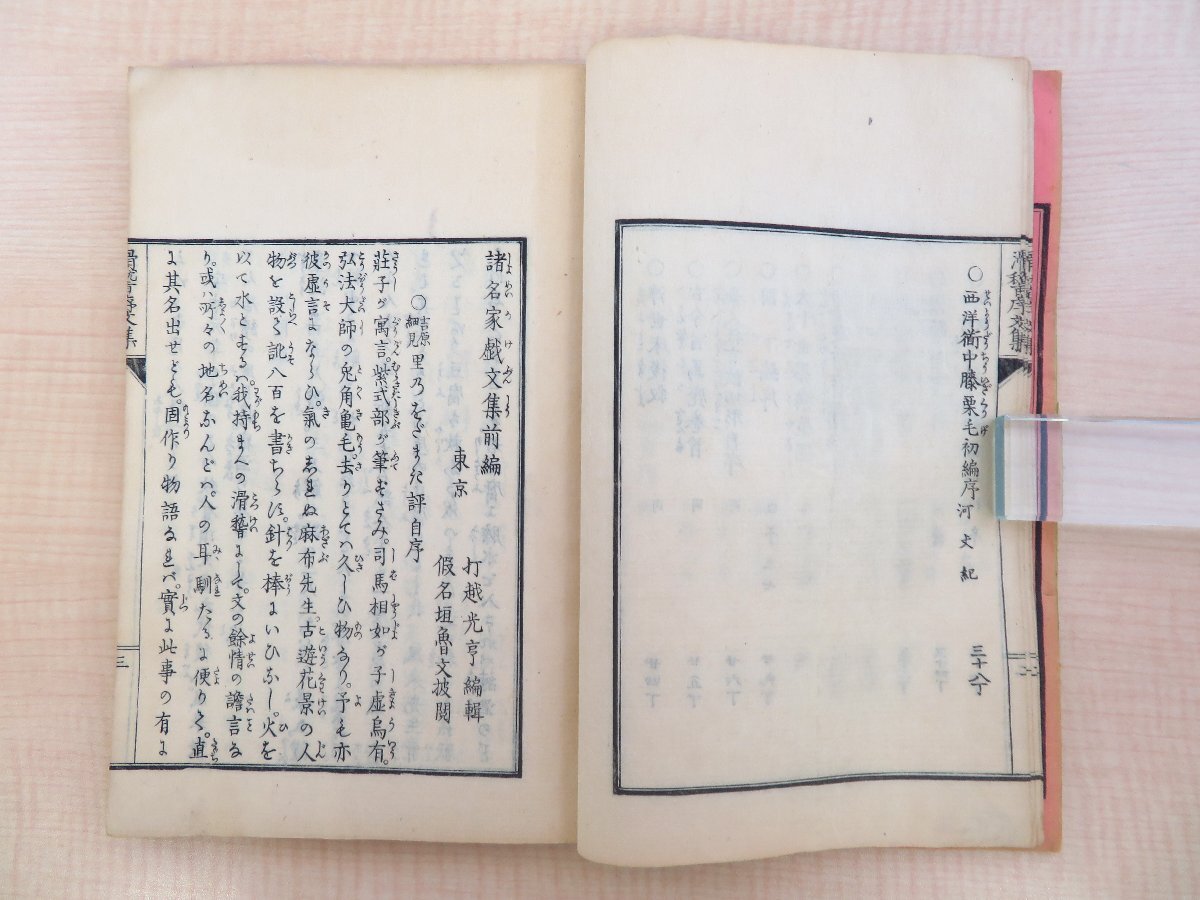 滑稽序文集
○西洋衜中膝栗毛初編序 河文紀 三十八丁
諸名家戯文集前編
東京 打越光亨編輯
假名垣魯文披閲
○吉原細見里乃をだまき評自序
莊子が寓言。紫式部が筆ずさみ。司馬相如が子虚烏有。
弘法大師の兎角亀毛。去りとてハ久しひ物なり。予も亦
彼虚言にならひ。氣のしれぬ麻布先生。古遊花景の人
物を設て訛八百を書ちらす。針を棒にいひなし。火を
以て水とするハ我持まへの滑稽にして。文の餘情の譫言な
り。或ハ所々の地名なんどハ。人の耳馴たるに便りて。直
に其名出せども。固作り物語なれバ。實に此事の有に
滑稽序文集
三